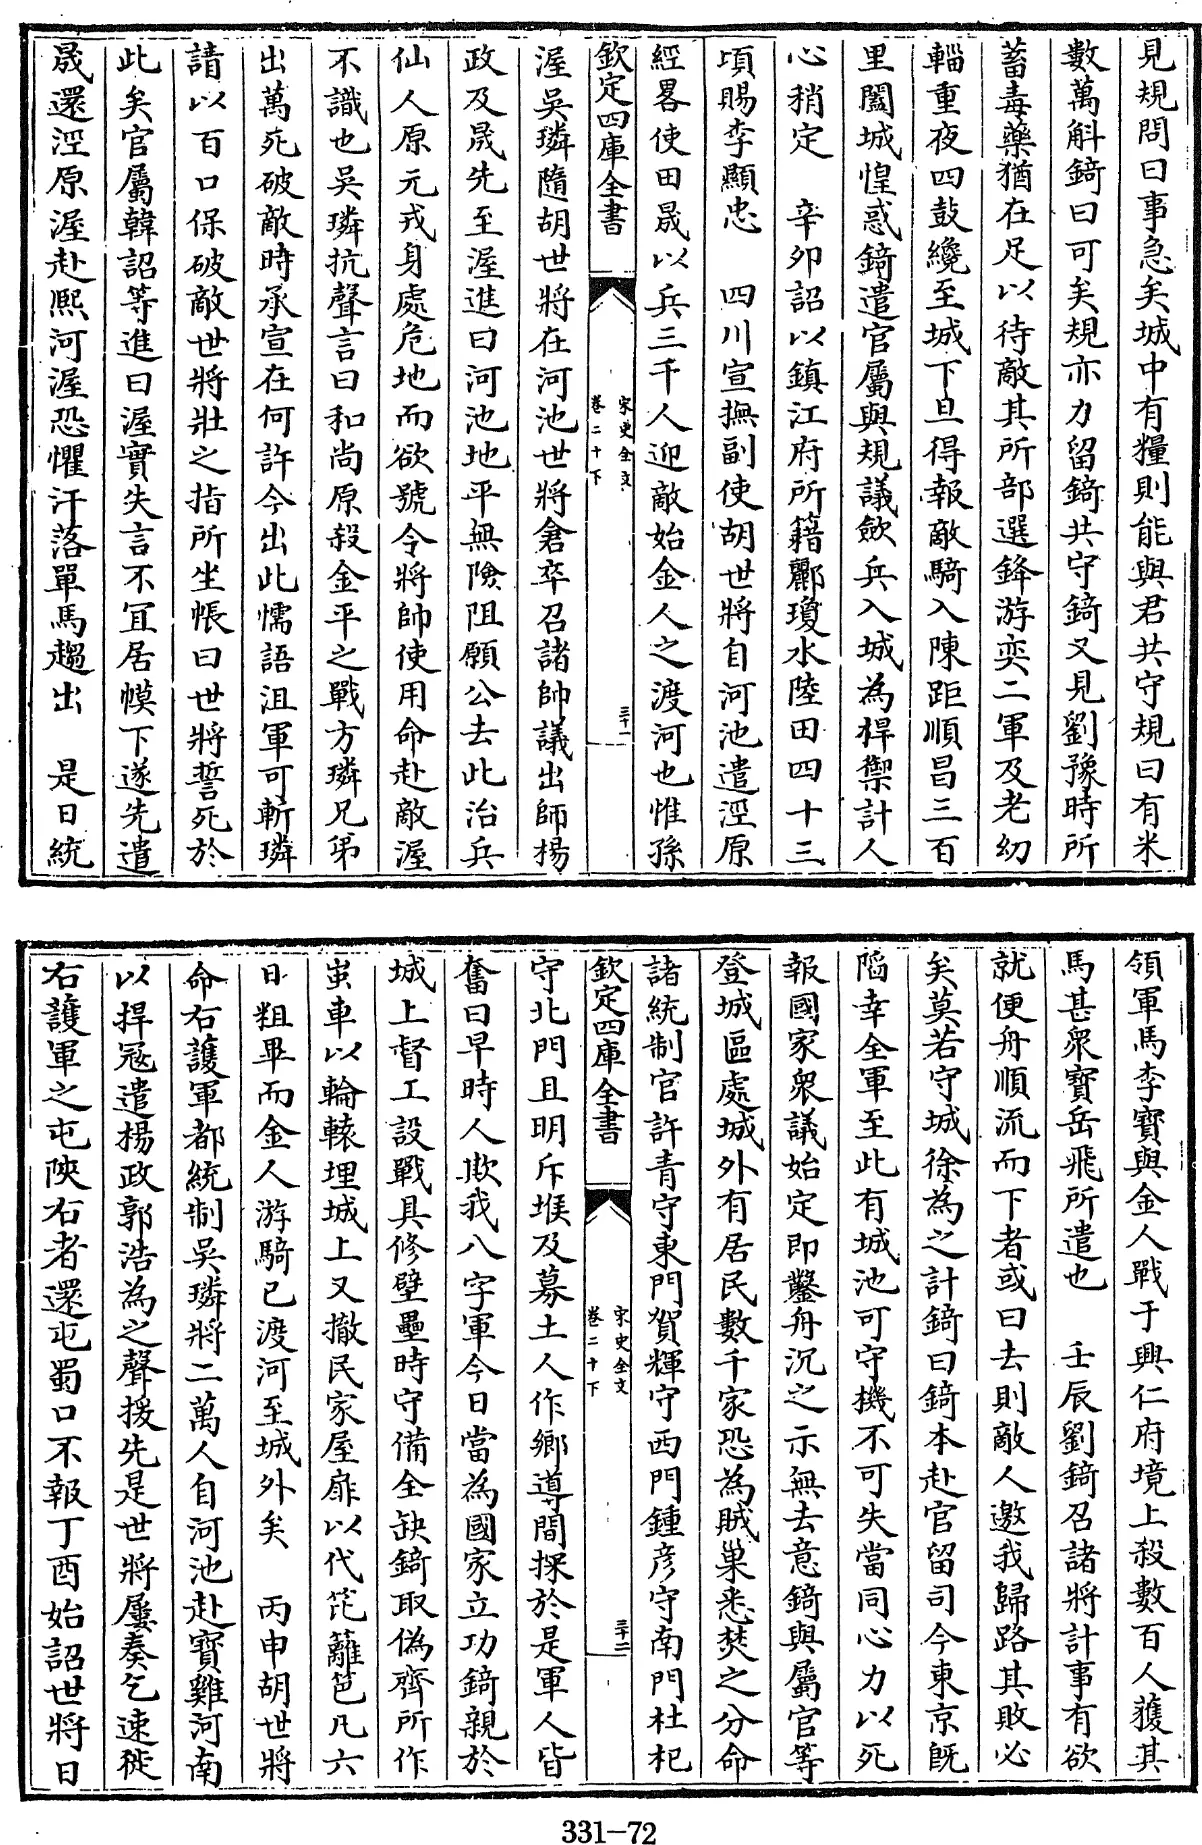 見規問曰事急矣城中有糧則能與君共守規曰有米
數萬斛錡曰可矣規亦力留錡共守錡又見劉豫時所
蓄毒藥猶在足以待敵其所部選鋒游奕二軍及老幼
輜重夜四鼓纔至城下旦得報敵騎入陳距順昌三百
里闔城惶惑錡遣官屬與規議歛兵入城為捍禦計人
心稍定　辛卯詔以鎮江府所籍酈瓊水陸田四十三
頃賜李顯忠　四川宣撫副使胡世將自河池遣涇原
經畧使田晟以兵三千人迎敵始金人之渡河也惟孫
欽定四庫全書
宋史全文
卷二十下
三十一
渥吳璘隨胡世將在河池世將倉卒召諸帥議出師楊
政及晟先至渥進曰河池地平無險阻願公去此治兵
仙人原元戎身處危地而欲號令將帥使用命赴敵渥
不識也吳璘抗聲言曰和尚原殺金平之戰方璘兄弟
出萬死破敵時承宣在何許今出此懦語沮軍可斬璘
請以百口保破敵世將壯之指所坐帳曰世將誓死於
此矣官屬韓詔等進曰渥實失言不宜居幙下遂先遣
晟還涇原渥赴熙河渥恐懼汗落單馬趨出　是日統
領軍馬李寶與金人戰于興仁府境上殺數百人獲其
馬甚衆寶岳飛所遣也　壬辰劉錡召諸將計事有欲
就便舟順流而下者或曰去則敵人邀我歸路其敗必
矣莫若守城徐為之計錡曰錡本赴官留司今東京既
陷幸全軍至此有城池可守機不可失當同心力以死
報國家衆議始定即鑿舟沉之示無去意錡與屬官等
登城區處城外有居民數千家恐為賊巢悉焚之分命
諸統制官許青守東門賀輝守西門鍾彦守南門杜杞
欽定四庫全書
宋史全文
卷二十下
三十二
守北門且明斥堠及募土人作鄉導間探於是軍人皆
奮曰早時人欺我八字軍今日當為國家立功錡親於
城上督工設戰具修壁壘時守備全缺錡取偽齊所作
蚩車以輪轅埋城上又撤民家屋扉以代笓籬笆凡六
日粗畢而金人游騎已渡河至城外矣　丙申胡世將
命右護軍都統制吳璘將二萬人自河池赴寶雞河南
以捍冦遣楊政郭浩為之聲援先是世將屢奏乞速徙
右護軍之屯陜右者還屯蜀口不報丁酉始詔世將日
331-72